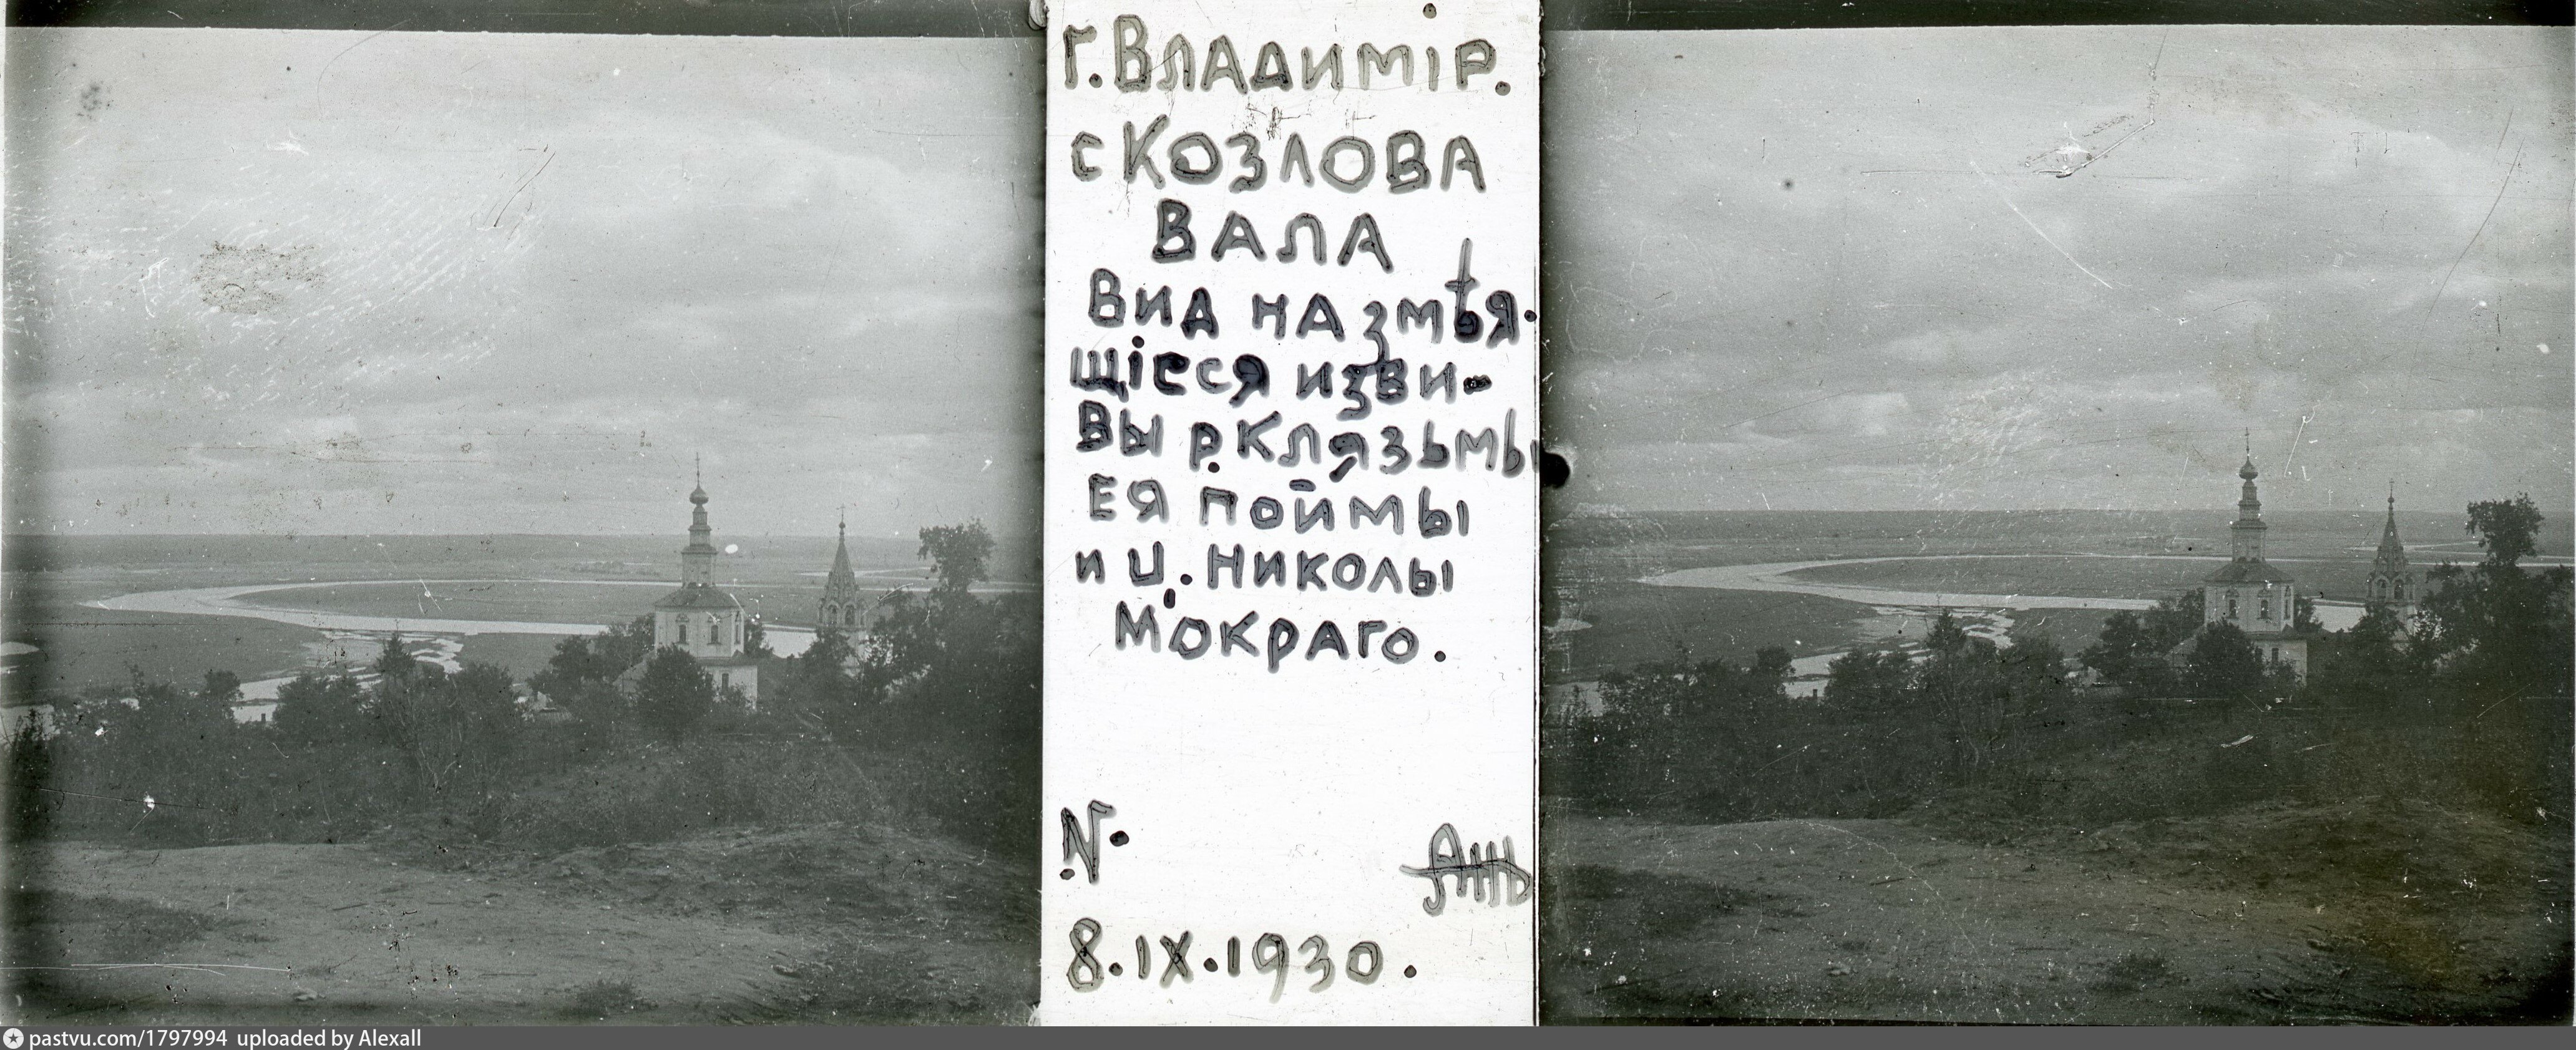 г. Владимiр.
с Козлова
вала
Вид на змѣя-
щiеся изви-
вы р. Клязьмы
ея поймы
и ц. Николы
Мокраго.
N.
8.IX.1930.
pastvu.com/1797994 uploaded by Alexall